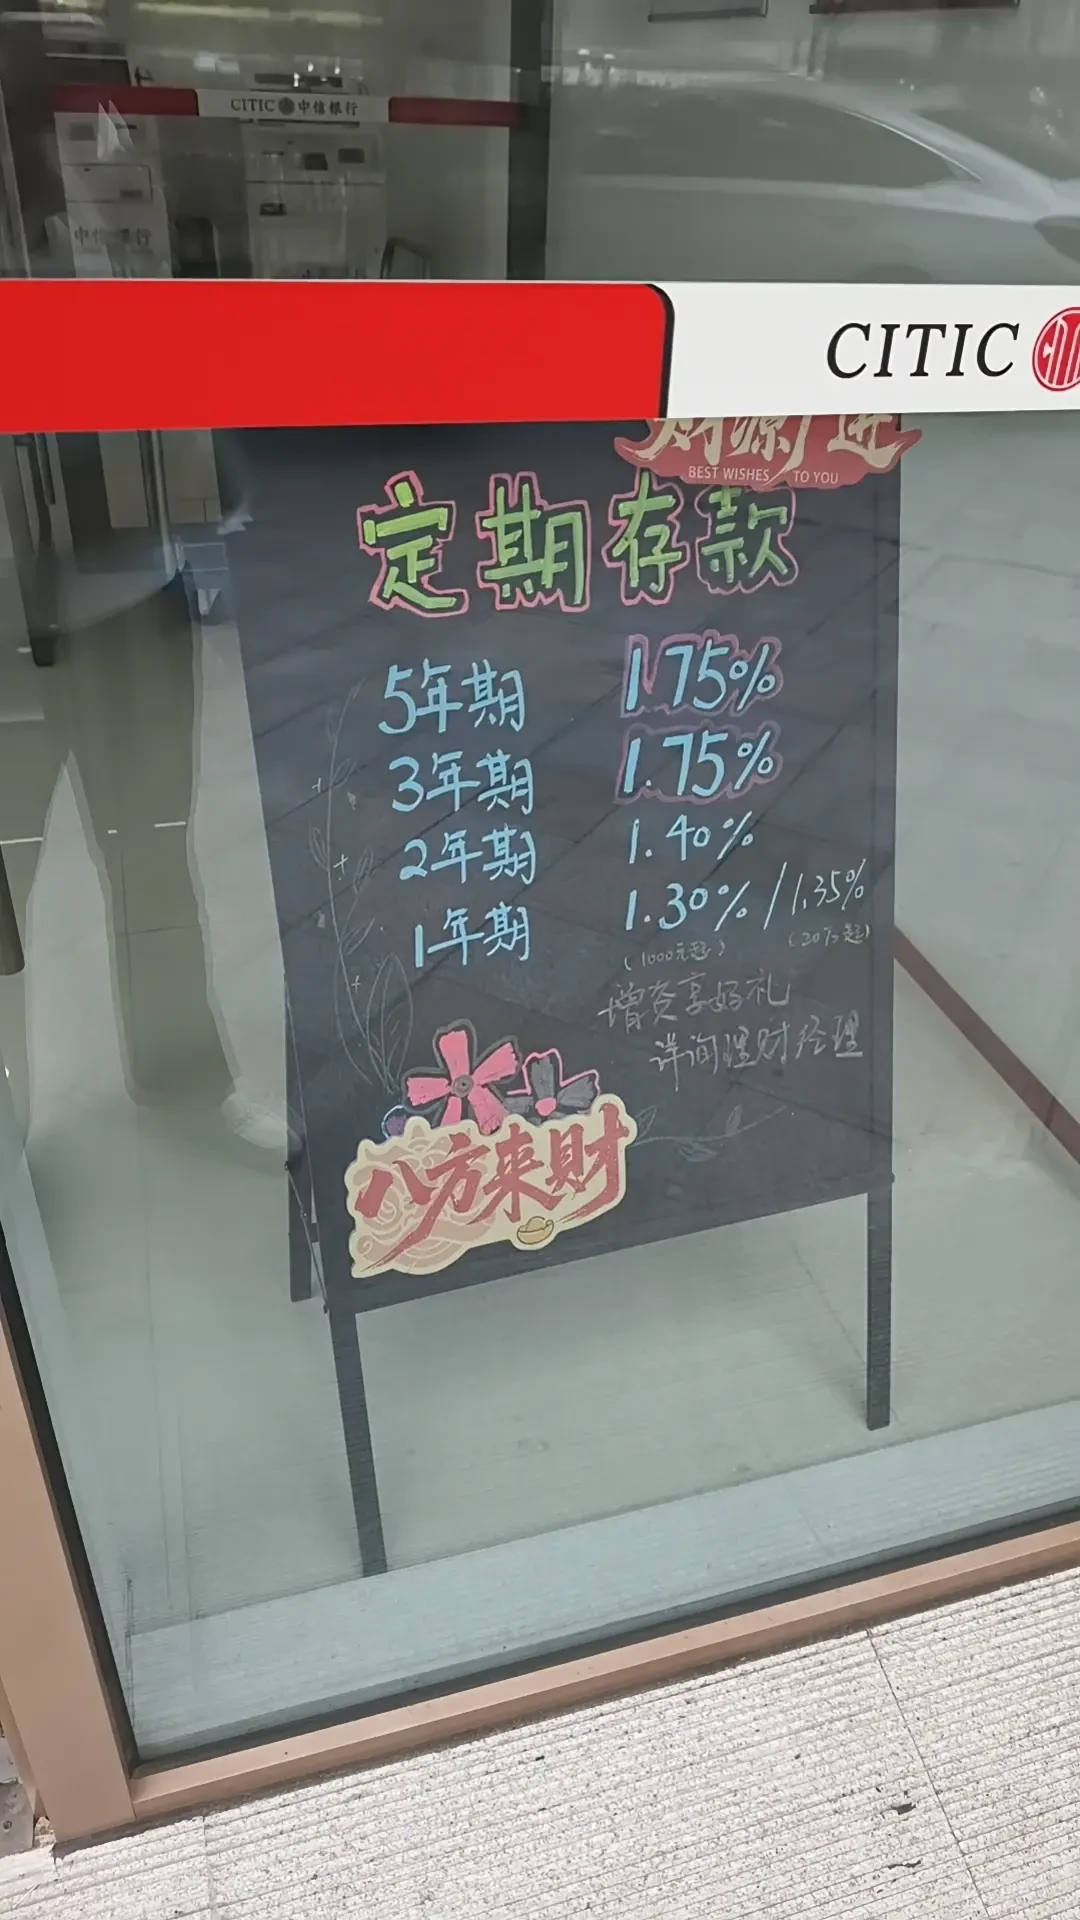 CITIC 中信银行
中信银行
CITIC
财源广进
BEST WISHES TO YOU
定期存款
5年期 1.75%
3年期 1.75%
2年期 1.40%
1年期 1.30% / 1.35%
(1000元起) (20万起)
增资享好礼
详询理财经理
八方来財